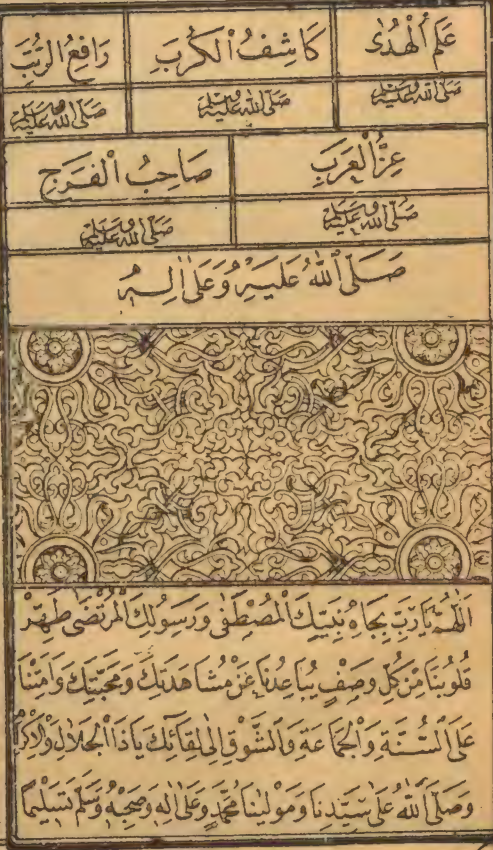 عَلَمُ ٱلْهُدٰى كَاشِفُ ٱلْكُرَبِ رَافِعُ الرُّتَبِ
صَلَّى اللهُ عَلَيْهِ وَسَلَّمَ صَلَّى اللهُ عَلَيْهِ وَسَلَّمَ صَلَّى اللهُ عَلَيْهِ وَسَلَّمَ
عِزُّ ٱلْعَرَبِ صَاحِبُ ٱلْفَرَجِ
صَلَّى اللهُ عَلَيْهِ وَسَلَّمَ صَلَّى اللهُ عَلَيْهِ وَسَلَّمَ
صَلَّى ٱللهُ عَلَيْهِ وَعَلٰى اٰلِهٖ
اَللّٰهُمَّ يَارَبِّ بِجَاهِ نَبِيِّكَ ٱلْمُصْطَفٰى وَرَسُولِكَ ٱلْمُرْتَضٰى طَهِّرْ
قُلُوبَنَا مِنْ كُلِّ وَصْفٍ يُبَاعِدُنَا عَنْ مُشَاهَدَتِكَ وَمَحَبَّتِكَ وَاَمِتْنَا
عَلَى ٱلسُّنَّةِ وَٱلْجَمَاعَةِ وَٱلشَّوْقِ اِلٰى لِقَائِكَ يَاذَا ٱلْجَلَالِ وَٱلْاِكْرَامِ
وَصَلَّى ٱللهُ عَلٰى سَيِّدِنَا وَمَوْلٰينَا مُحَمَّدٍ وَعَلٰى اٰلِهٖ وَصَحْبِهٖ وَسَلَّمَ تَسْلِيمًا